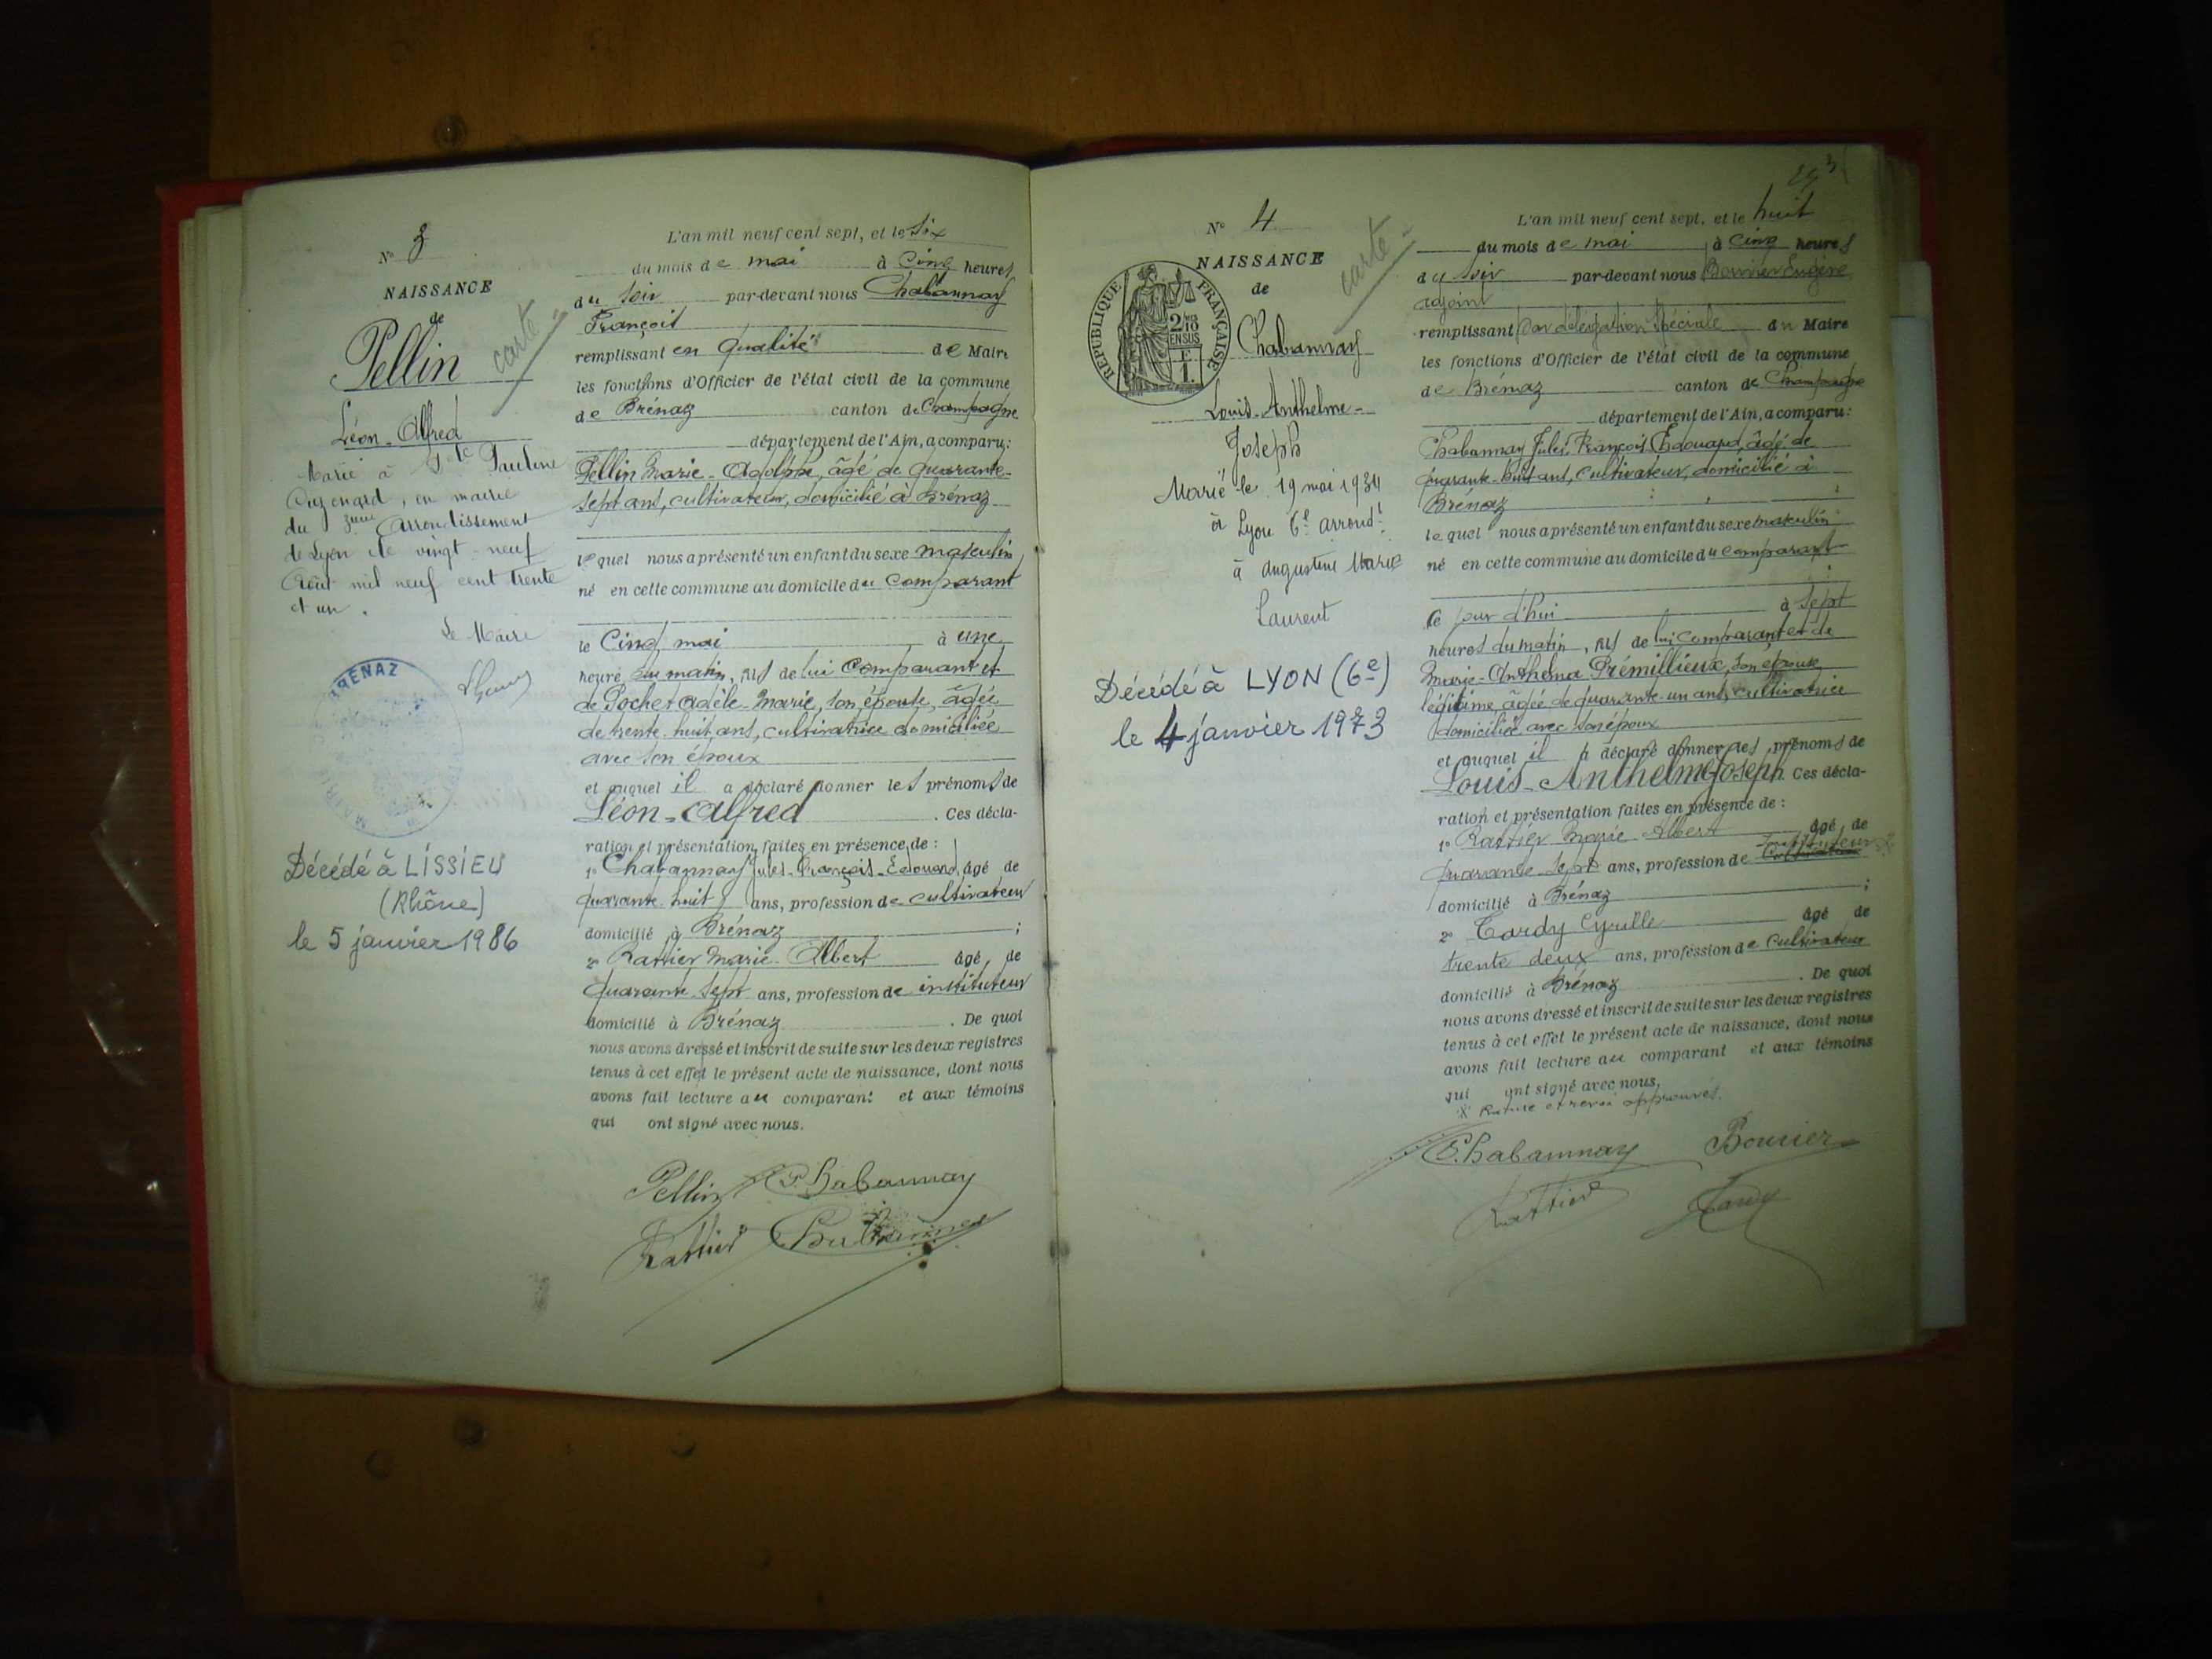 N° 3
NAISSANCE
de
Pellin
carte
Léon-Alfred
Marié à Pauline
en mairie
du 3ème Arrondissement
de Lyon le vingt-neuf
Août mil neuf cent trente
et un.
Le Maire
BRÉNAZ
Décédé à LISSIEU
(Rhône)
le 5 janvier 1986
L'an mil neuf cent sept, et le six
du mois de mai à cinq heures
du soir par-devant nous Chabannay
François
remplissant en qualité de Maire
les fonctions d'Officier de l'état civil de la commune
de Brénaz canton de Champagne
département de l'Ain, a comparu:
Pellin Marie-Adolphe, âgé de quarante-
sept ans, cultivateur, domicilié à Brénaz
lequel nous a présenté un enfant du sexe masculin
né en cette commune au domicile du comparant
le cinq mai à une
heure du matin, fils de lui comparant et
de Pochet Adèle-Marie, son épouse, âgée
de trente-huit ans, cultivatrice domiciliée
avec son époux
et auquel il a déclaré donner les prénoms de
Léon-Alfred. Ces décla-
ration et présentation faites en présence de :
1° Chabannay Jules-François-Edouard âgé de
quarante-huit ans, profession de cultivateur
domicilié à Brénaz ;
2° Rattier Marie-Albert âgé de
quarante-sept ans, profession de instituteur
domicilié à Brénaz. De quoi
nous avons dressé et inscrit de suite sur les deux registres
tenus à cet effet le présent acte de naissance, dont nous
avons fait lecture au comparant et aux témoins
qui ont signé avec nous.
Pellin Chabannay
Rattier
N° 4
NAISSANCE
de
carte
RÉPUBLIQUE FRANÇAISE
2/10
EN SUS
Chabannay
Louis-Anthelme-
Joseph
Marié le 19 mai 1934
à Lyon 6e arrondt
à Augustine Marie
Laurent
Décédé à LYON (6e)
le 4 janvier 1973
3
L'an mil neuf cent sept, et le huit
du mois de mai à cinq heures
du soir par-devant nous Bouvier Eugène
adjoint
remplissant par délégation spéciale du Maire
les fonctions d'Officier de l'état civil de la commune
de Brénaz canton de Champagne
département de l'Ain, a comparu:
Chabannay Jules, François, Edouard, âgé de
quarante-huit ans, cultivateur, domicilié à
Brénaz
lequel nous a présenté un enfant du sexe masculin
né en cette commune au domicile du comparant
ce jour d'hui à sept
heures du matin, fils de lui comparant et de
Marie-Anthelma Prémillieux, son épouse
légitime, âgée de quarante-un ans, cultivatrice
domiciliée avec son époux
et auquel il a déclaré donner les prénoms de
Louis-Anthelme Joseph. Ces décla-
ration et présentation faites en présence de :
1° Rattier Marie Albert âgé de
instituteur
quarante-sept ans, profession de cultivateur
domicilié à Brénaz ;
2° Tardy Cyrille âgé de
trente deux ans, profession de cultivateur
domicilié à Brénaz. De quoi
nous avons dressé et inscrit de suite sur les deux registres
tenus à cet effet le présent acte de naissance, dont nous
avons fait lecture au comparant et aux témoins
qui ont signé avec nous.
Rature et renvoi approuvés.
Chabannay Bouvier
Rattier Tardy